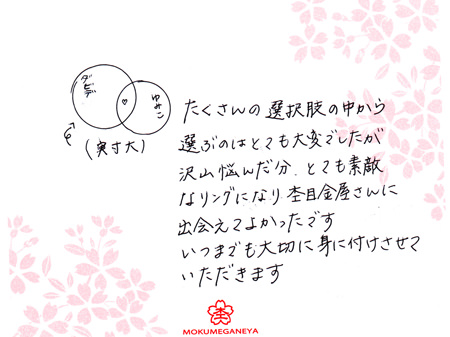 ダビデ
ゆみこ
(実寸大)
たくさんの選択肢の中から
選ぶのはとても大変でしたが
沢山悩んだ分、とても素敵
なリングになり杢目金屋さんに
出会えてよかったです
いつまでも大切に身に付けさせて
いただきます
杢
MOKUMEGANEYA